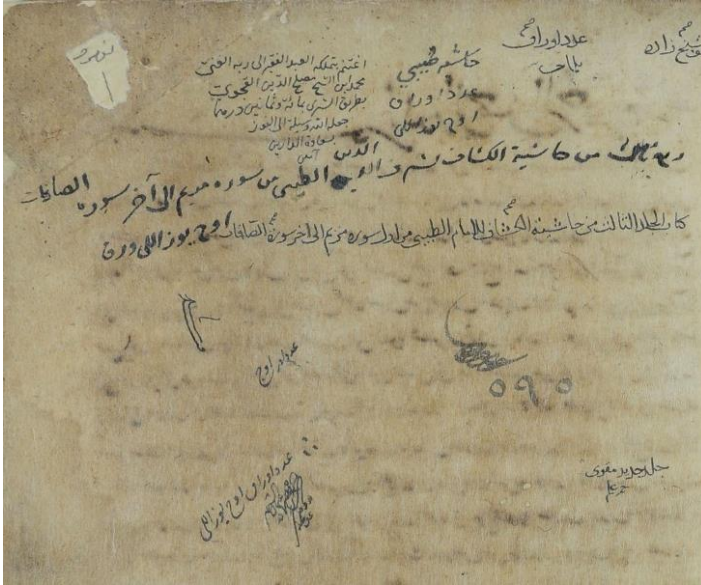 عدد اوراق
حاشيه طيبي
عدد اوراق
اوچ يوز اللى
اغتنم بتملكه العبد الفقير الى ربه الغنى
محمد بن الشيخ مصلح الدين القوجوى
بطريق الشرى بمائة وثمانين درهما
جعله الله وسيلة الى الفوز
بسعادة الدارين
آمين
من حاشية الكشاف لشرف الدين الطيبى من سوره مريم الى آخر سورة الصافات
كتاب الجلد الثالث من حاشية الكشاف للامام الطيبى من اول سوره مريم الى اخر سورة الصافات اوچ يوز اللى ورق
عدد اوراق
٥٩٥
عدد اوراق اوچ يوز اللى
جلد جديد مقوى